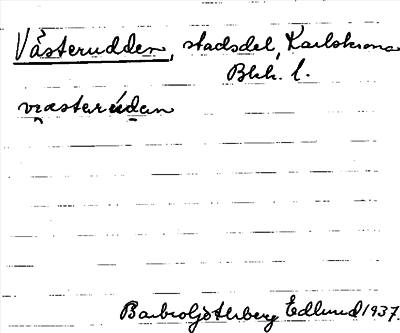 Västerudden, stadsdel, Karlskrona
Blek. l.
væsterúdan
Barbro Götherberg Edlund 1937.